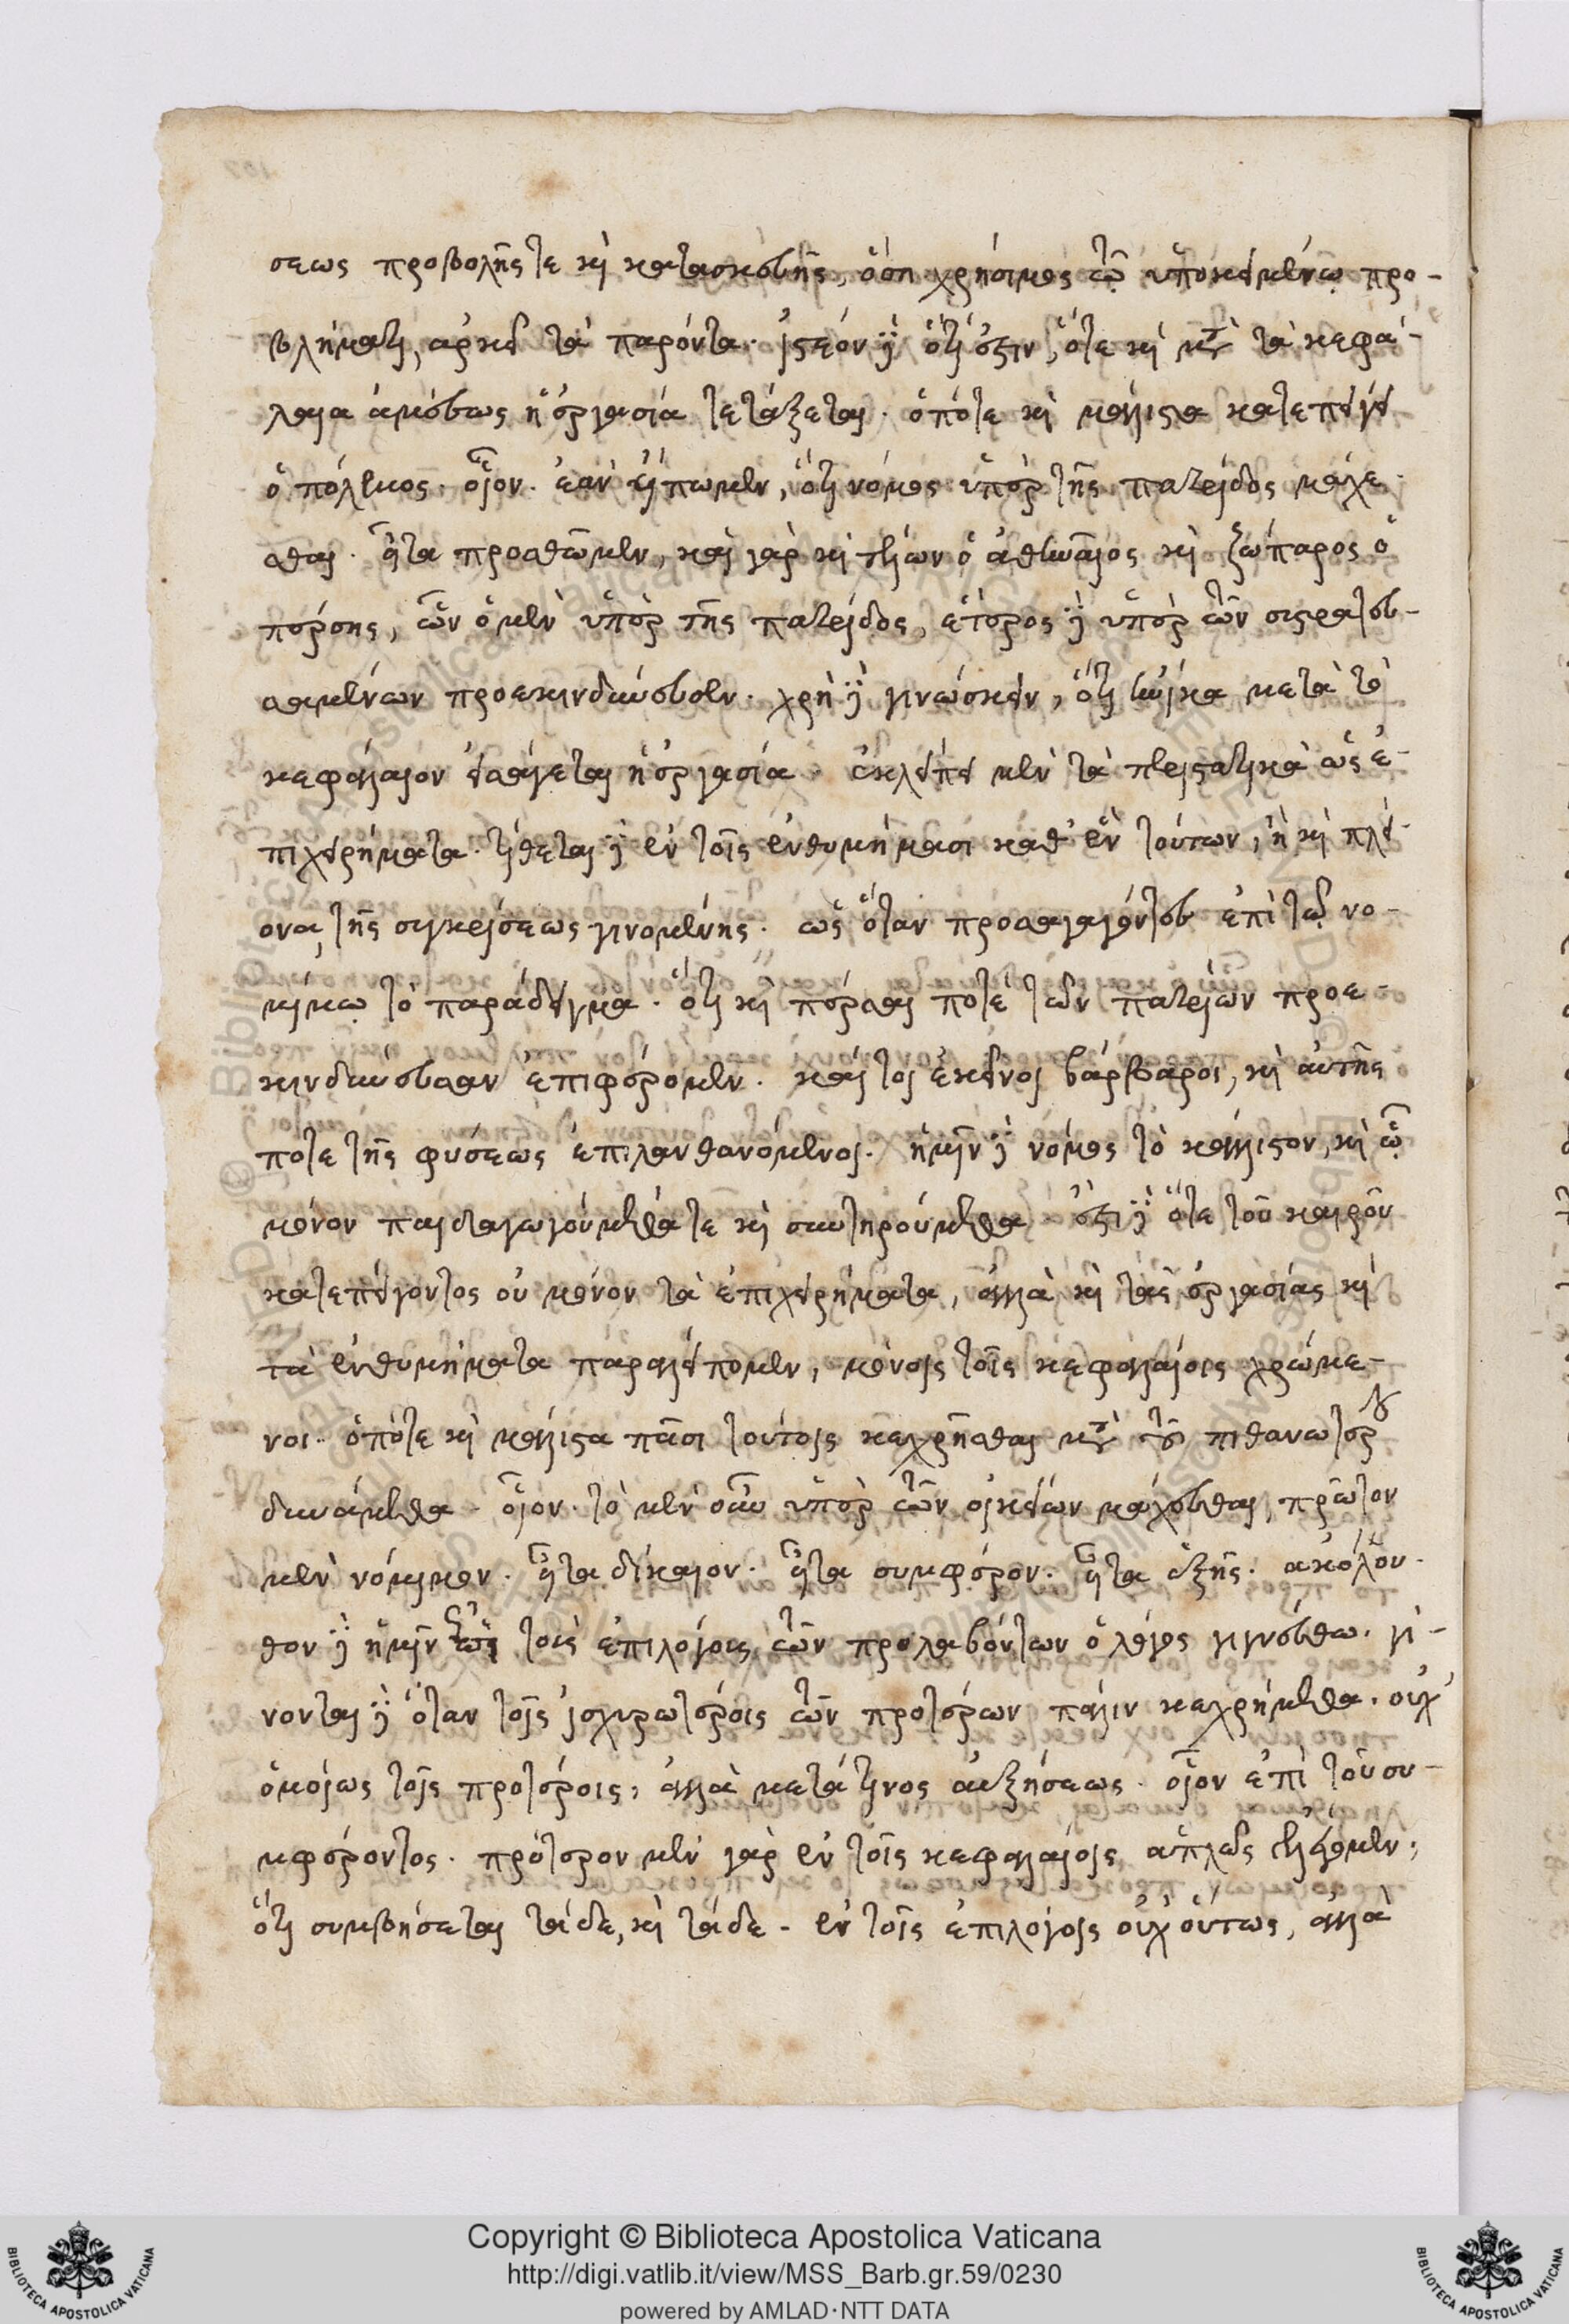 σεως προβολῆς τε καὶ κατασκευῆς, ὅση χρήσιμος τῷ ὑποκειμένῳ προ-
βλήματι, ἀρκεῖ τὰ παρόντα. ἰστέον δὲ ὅτι ἔστιν, ὅτε καὶ κατὰ τὰ κεφά-
λαια ἀμέσως ἡ ἐργασία τετάξεται. ὁπότε καὶ μάλιστα κατεπείγει
ὁ πόλεμος. οἷον. ἐὰν εἴπωμεν, ὅτι νόμος ὑπὲρ τῆς πατρίδος μάχε-
σθαι. εἶτα προσθῶμεν, καὶ γὰρ καὶ τιμων ὁ ἀθηναῖος καὶ ζώπαρος ὁ
πέρσης, ὧν ὁ μὲν ὑπὲρ τῆς πατρίδος, ἕτερος δὲ ὑπὲρ τῶν στρατευ-
σαμένων προεκινδύνευσεν. χρὴ δὲ γινώσκειν, ὅτι ἡνίκα μετὰ τὸ
κεφάλαιον εἰσάγεται ἡ ἐργασία. ἐκλείπει μὲν τὰ περιστατικὰ ὡς ἐ-
πιχειρήματα. τίθεται δὲ ἐν τοῖς ἐνθυμήμασι καθ' ἓν τούτων, ἢ καὶ πλεί-
ονα, τῆς συγκρίσεως γινομένης. ὡς ὅταν προσαγαγόντες ἐπὶ τῷ νο-
μίμῳ τὸ παράδειγμα. ὅτι καὶ πέρσαι ποτὲ τῶν πατρίων προε-
κινδύνευσαν ἐπιφέρομεν. καίτοι ἐκεῖνοι βάρβαροι, καὶ αὐτῆς
ποτε τῆς φύσεως ἐπιλανθανόμενοι. ἡμῖν δὲ νόμος τὸ κάλλιστον, καὶ ᾧ
μόνον παιδαγωγούμεθά τε καὶ σωτηρούμεθα ἔστι δὲ ὅτε τοῦ καιροῦ
κατεπείγοντος οὐ μόνον τὰ ἐπιχειρήματα, ἀλλὰ καὶ τὰς ἐργασίας καὶ
τὰ ἐνθυμήματα παραλείπομεν, μόνοις τοῖς κεφαλαίοις χρώμε-
νοι. ὁπότε καὶ μάλιστα πᾶσι τούτοις κεχρῆσθαι κατὰ τὸ πιθανώτερ
δυνάμεθα. οἷον. τὸ μὲν οὖν ὑπὲρ τῶν οἰκείων μάχεσθαι, πρῶτον
μὲν νόμιμον. εἶτα δίκαιον. εἶτα συμφέρον. εἶτα ἑξῆς. ἀκόλου-
θον δὲ ἡμῖν ὡς τοῖς ἐπιλόγοις τῶν προλαβόντων ὁ λόγος γιγνέσθω. γί-
νονται δὲ ὅταν τοῖς ἰσχυρωτέροις τῶν προτέρων πάλιν κεχρήμεθα. οὐχ
ὁμοίως τοῖς προτέροις, ἀλλὰ μετά τινος αὐξήσεως. οἷον ἐπὶ τοῦ συ-
μφέροντος. πρότερον μὲν γὰρ ἐν τοῖς κεφαλαίοις ἁπλῶς τίθεμεν,
ὅτι συμβήσεται τάδε, καὶ τάδε. ἐν τοῖς ἐπιλόγοις οὐχ οὕτως, ἀλλὰ
Copyright © Biblioteca Apostolica Vaticana
http://digi.vatlib.it/view/MSS_Barb.gr.59/0230
powered by AMLAD·NTT DATA
BIBLIOTECA APOSTOLICA VATICANA
BIBLIOTECA APOSTOLICA VATICANA